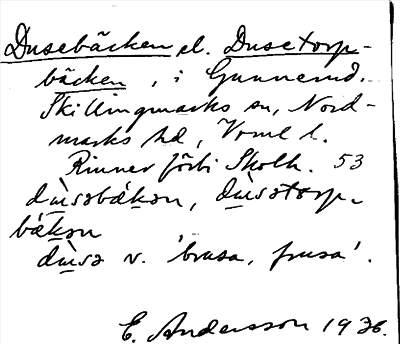 Dusebäcken el. Dusetorp-
bäcken, i Gunnerud.
Skillingmarks sn, Nord-
marks hd, Vrml l.
Rinner förbi Skolh. 53
dùsəbǽkən, dùsətorp-
bǽkən
dùsə v. 'brusa, frusa'.
E. Andersson 1936.